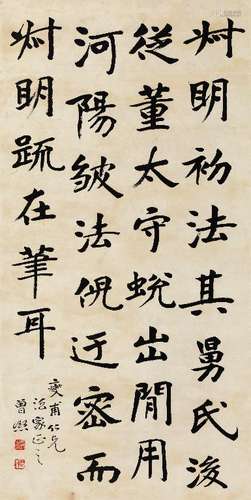 叔明初法其舅氏後
從董太守蛻出閒用
河陽皴法倪迂密而
叔明疏在筆耳
甫仁兄
法家正之
曾熙